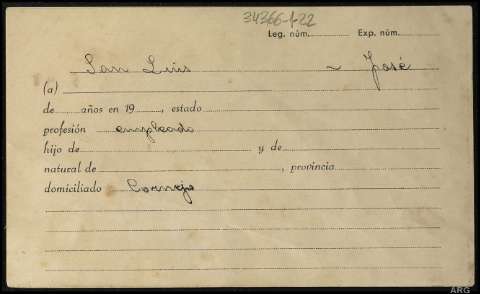 34366-1-22
Leg. núm. Exp. núm.
San Luis ~ José
(a)
de años en 19 , estado
profesión empleado
hijo de y de
natural de , provincia
domiciliado Cornejo
ARG